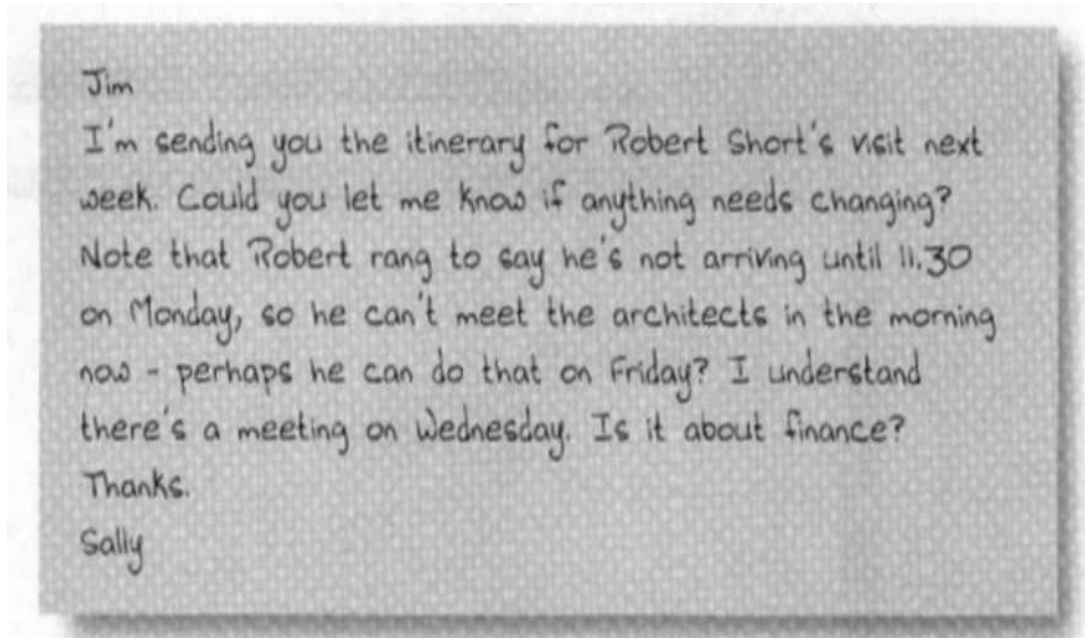 Jim
I'm sending you the itinerary for Robert Short's visit next
week. Could you let me know if anything needs changing?
Note that Robert rang to say he's not arriving until 11.30
on Monday, so he can't meet the architects in the morning
now - perhaps he can do that on Friday? I understand
there's a meeting on Wednesday. Is it about finance?
Thanks.
Sally